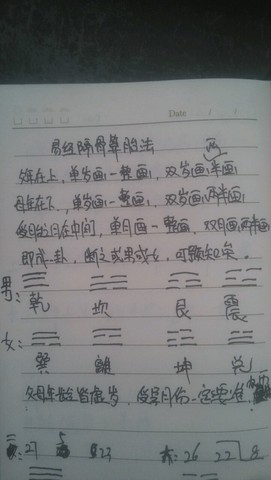 Date
易经隔骨算胎法
两
父年在上，单岁画一整画，双岁画半画
母年在下，单岁画一整画，双岁画两半画
受胎月在中间，单月画一整画，双月画两半画
即成一卦，断之或男或女，可预知矣。
男：
乾 坎 艮 震
女：
巽 離 坤 兑
父母年龄皆虚岁，受孕月份一定要准
27 5 23 26 22 8